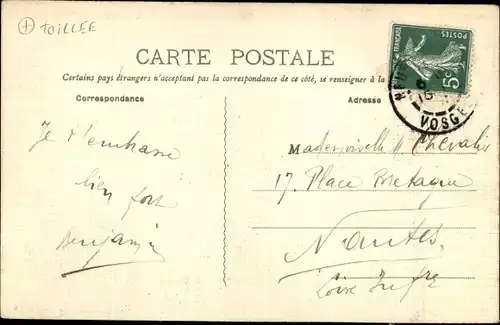 TOILLEE
CARTE POSTALE
Certains pays étrangers n'acceptant pas la correspondance de ce côté, se renseigner à la
Correspondance
Adresse
POSTES
5c
VOSGES
Je t'embrasse
bien fort
Benjamin
Mademoiselle Chevalier
17, Place Bretagne
Nantes
Loire Infre